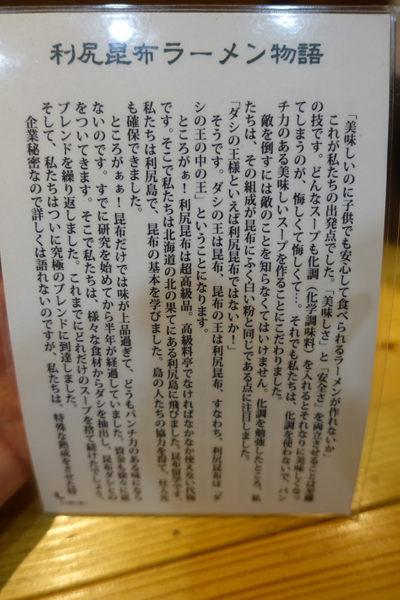 利尻昆布ラーメン物語
「美味しいのに子供でも安心して食べられるラーメンが作れないか」
これが私たちの出発点でした。「美味しさ」と「安全さ」を両立させることは至難
の技です。どんなスープも化調（化学調味料）を入れるとそれなりに美味しくなっ
てしまうのが、悔しくて悔しくて…。それでも私たちは、化調を使わないで、パン
チ力のある美味しいスープを作ることにこだわりました。
敵を倒すには敵のことを知らなくてはいけません。化調を勉強したところ、私
たちは、その組成が昆布にふく白い粉と同じである点に注目しました。
「ダシの王様といえば利尻昆布ではないか！」
そうです。ダシの王は昆布、昆布の王は利尻昆布、すなわち、利尻昆布は「ダ
シの王の中の王」ということになります。
ところがぁ！利尻昆布は超高級品。高級料亭でなければなかなか使えない代物
です。そこで私たちは北海道の北の果てにある利尻島に飛びました。昆布留学です。
私たちは利尻島で、昆布の基本を学びました。島の人たちの協力を得て、仕入先
も確保できました。
ところがぁぁ！昆布だけでは味が上品過ぎて、どうもパンチ力のある味になら
ないのです。すでに研究を始めてから半年が経過していました。資金も様々に底
をついてきます。そこで私たちは、様々な食材からダシを抽出し、昆布ダシとの
ブレンドを繰り返しました。これまでにどれだけのスープを捨て続けたでしょう。
そして、私たちはついに究極のブレンドに到達しました。
企業秘密なので詳しくは語れないのですが、私たちは、特殊な熟成をさせた特